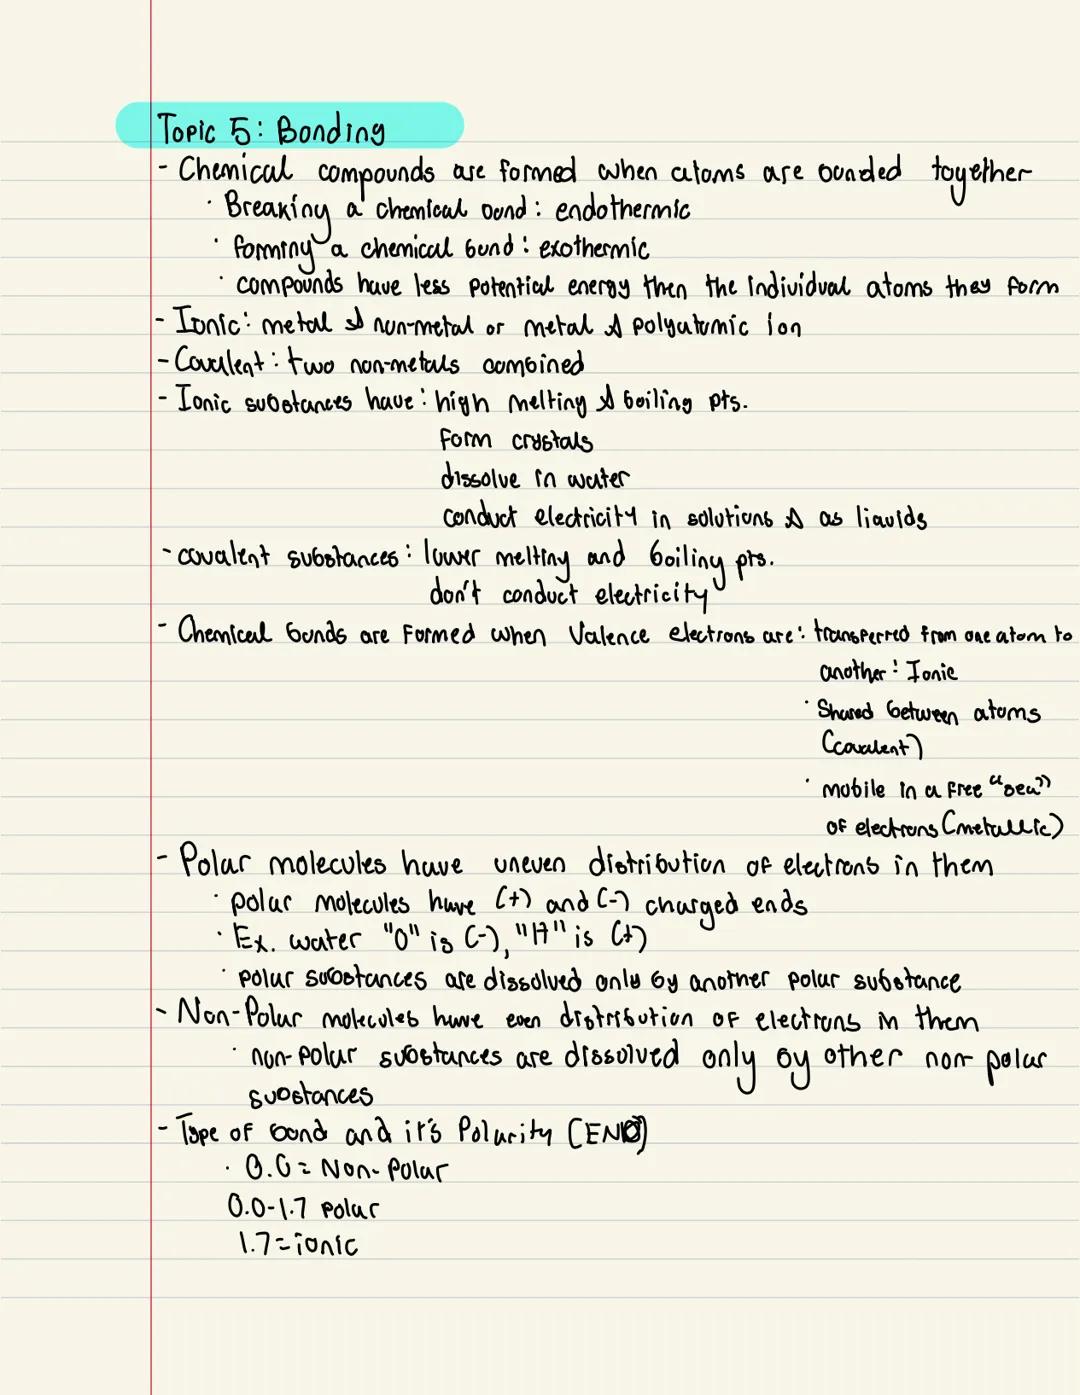 Topic 5: Bonding
- Chemical compounds are formed when atoms are bonded together
· Breaking a chemical bond: endothermic
· forming a chemical bond: exothermic
· compounds have less potential energy then the individual atoms they form
- Ionic: metal & non-metal or metal & polyatomic ion
- Covalent: two non-metals combined
- Ionic substances have: high melting & boiling pts.
form crystals
dissolve in water
conduct electricity in solutions & as liquids
- covalent substances: lower melting and boiling pts.
don't conduct electricity
- Chemical bonds are formed when valence electrons are: transferred from one atom to
another: Ionic
· Shared between atoms
(covalent)
· mobile in a free "sea"
of electrons (metallic)
- Polar molecules have uneven distribution of electrons in them
· polar molecules have (+) and (-) charged ends
· Ex. water "O" is (-), "H" is (+)
· polar substances are dissolved only by another polar substance
- Non-Polar molecules have even distribution of electrons in them
· non-polar substances are dissolved only by other non-polar
substances
- Type of bond and it's Polarity (END)
· 0.0 = Non-Polar
0.0-1.7 polar
1.7=ionic